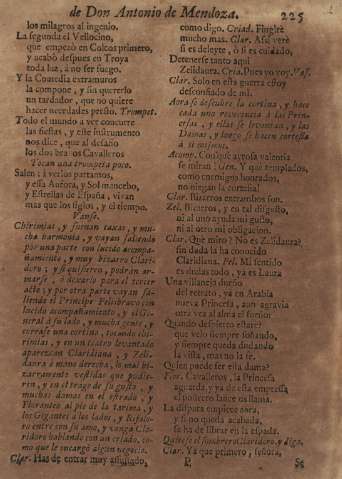 de Don Antonio de Mendoza. 225
los milagros al ingenio.
La segunda el Vellocino,
que empezò en Colcos primero,
y acabò despues en Troya
toda luz, à no ser fuego.
Y la Comedia entramuros
la compone, y sin quererlo
un tardador, que no quiere
hacer necedades presto. Trompet.
Todo el mundo a vèr concurre
las fiestas, y este instrumento
nos dice, que al desafio
los dos bravos Cavalleros
Tocan una trompeta poco.
Salen: à verlos partamos,
y essa Aurora, y Sol mancebo,
y Estrellas de España, vivan
mas que los siglos, y el tiempo.
Vanse.
Chirimias, y suenan caxas, y mucha
harmonia, y vayan saliendo
por una parte con lucido acompañamiento,
y muy bizarro Claridoro;
y si quisieren, podràn armarse,
ò dexarlo para el tercer
acto; y por otra parte vayan saliendo
el Principe Felisbravo con
lucido acompañamiento, y el General
à su lado, y mucha gente, y
cerrase una cortina, tocando chirimias,
y en un teatro levantado
aparezcan Claridiana, y Zelidaura
à mano derecha, lo mas bizarramente
vestidas que pudieren,
y en el trage de su gusto, y
muchas damas en el estrado, y
Florantèo al pie de la tarima, y
los Gigantes à los lados, y
entre con su amo, y venga Claridoro
hablando con un criado, como
que le encargò algun negocio.
Clar. Has de entrar muy assustado,
como digo. Criad. Fingirè
mucho mas. Clar. Assi verè
si es deleyte, ò si es cuidado,
Detenerse tanto aqui
Zelidaura. Cria. Pues voy voy. Vas.
Clar. Solo en esta guerra estoy
desconfiado de mi.
Aora se descubre la cortina, y hace
cada uno reverencia à las Princesas,
y ellas se levantan, y las
Damas, y luego se hacen cortesia
à sì mismos.
Acomp. Con què ayrosa valentia
se miran! Gen. Y què templados,
como enemigos honrados,
no niegan la cortesia!
Clar. Bizarros entrambos son.
Zel. Bizarros, y en tal disgusto,
ni al uno ayuda mi gusto,
ni al otro mi obligacion.
Clar. Què miro? No es Zelidaura?
sin duda la ha conocido
Claridiana. Fel. Mi sentido
es dudas todo, ya es Laura
Una villanejo dueño
del retrato, ya en Arabia
nueva Princesa, aun agravia
otra vez al alma el sueño:
Quando despierto estarè?
que velo siempre soñando,
y siempre queda dudando
la vista, mas no la fe.
Quien puede ser esta dama?
Flor. Cavalleros, la Princesa
aguarda, y ya de esta empressa
el postrero lance os llama.
La disputa empiece aora,
y si no queda acabada,
se ha de librar en la espada.
Quitese el sombrero Claridoro, y diga.
Clar. Ya que primero, señora,
P. Se